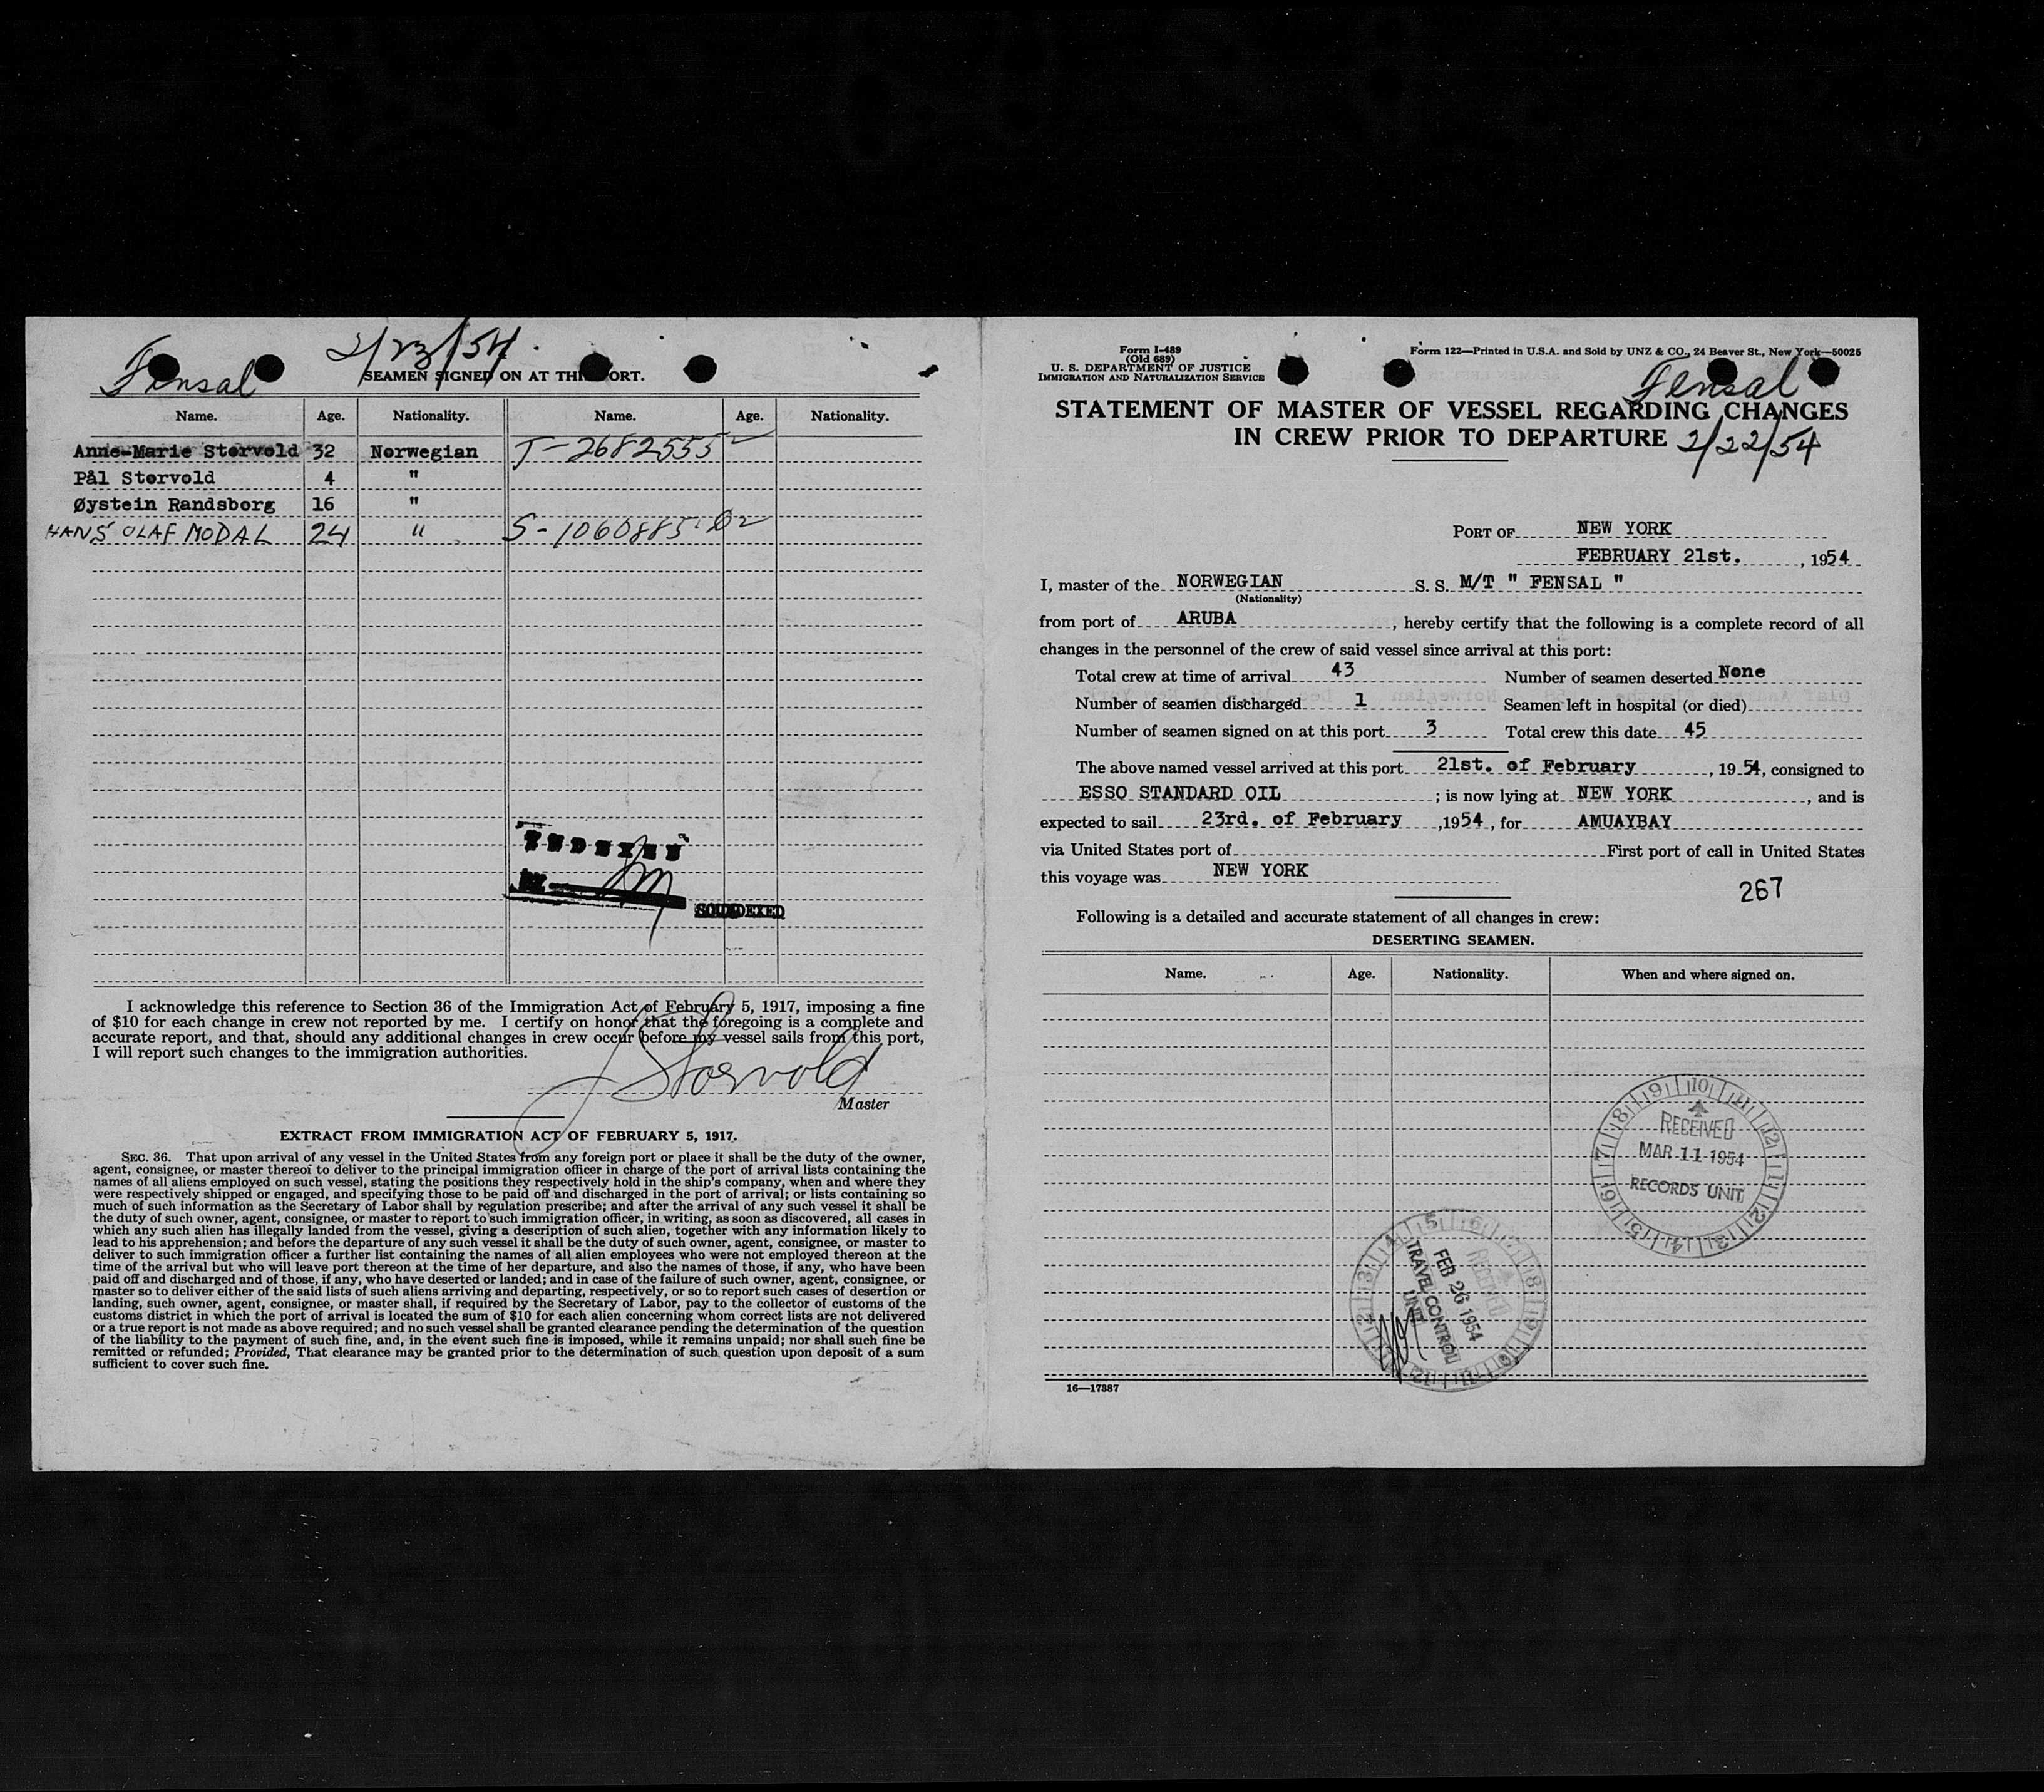 Fensal 2/23/54.
SEAMEN SIGNED ON AT THIS PORT.
Name. Age. Nationality. Name. Age. Nationality.
Anne-Marie Storvold 32 Norwegian T-2682555
Pål Storvold 4 "
Øystein Randsborg 16 "
HANS OLAF MODAL 24 "
SOUNDEXED
I acknowledge this reference to Section 36 of the Immigration Act of February 5, 1917, imposing a fine
of $10 for each change in crew not reported by me. I certify on honor that the foregoing is a complete and
accurate report, and that, should any additional changes in crew occur before my vessel sails from this port,
I will report such changes to the immigration authorities.
J Storvold
Master
EXTRACT FROM IMMIGRATION ACT OF FEBRUARY 5, 1917.
SEC. 36. That upon arrival of any vessel in the United States from any foreign port or place it shall be the duty of the owner,
agent, consignee, or master thereof to deliver to the principal immigration officer in charge of the port of arrival lists containing the
names of all aliens employed on such vessel, stating the positions they respectively hold in the ship's company, when and where they
were respectively shipped or engaged, and specifying those to be paid off and discharged in the port of arrival; or lists containing so
much of such information as the Secretary of Labor shall by regulation prescribe; and after the arrival of any such vessel it shall be
the duty of such owner, agent, consignee, or master to report to such immigration officer, in writing, as soon as discovered, all cases in
which any such alien has illegally landed from the vessel, giving a description of such alien, together with any information likely to
lead to his apprehension; and before the departure of any such vessel it shall be the duty of such owner, agent, consignee, or master to
deliver to such immigration officer a further list containing the names of all alien employees who were not employed thereon at the
time of the arrival but who will leave port thereon at the time of her departure, and also the names of those, if any, who have been
paid off and discharged and of those, if any, who have deserted or landed; and in case of the failure of such owner, agent, consignee, or
master so to deliver either of the said lists of such aliens arriving and departing, respectively, or so to report such cases of desertion or
landing, such owner, agent, consignee, or master shall, if required by the Secretary of Labor, pay to the collector of customs of the
customs district in which the port of arrival is located the sum of $10 for each alien concerning whom correct lists are not delivered
or a true report is not made as above required; and no such vessel shall be granted clearance pending the determination of the question
of the liability to the payment of such fine, and, in the event such fine is imposed, while it remains unpaid; nor shall such fine be
remitted or refunded; Provided, That clearance may be granted prior to the determination of such question upon deposit of a sum
sufficient to cover such fine.
Form I-489
(Old 689)
U. S. DEPARTMENT OF JUSTICE
IMMIGRATION AND NATURALIZATION SERVICE
Form 122—Printed in U.S.A. and Sold by UNZ & CO., 24 Beaver St., New York—50025
Fensal
STATEMENT OF MASTER OF VESSEL REGARDING CHANGES
IN CREW PRIOR TO DEPARTURE 2/22/54
PORT OF NEW YORK
FEBRUARY 21st., 1954
I, master of the NORWEGIAN S. S. M/T " FENSAL "
(Nationality)
from port of ARUBA, hereby certify that the following is a complete record of all
changes in the personnel of the crew of said vessel since arrival at this port:
Total crew at time of arrival 43 Number of seamen deserted None
Number of seamen discharged 1 Seamen left in hospital (or died)
Number of seamen signed on at this port 3 Total crew this date 45
The above named vessel arrived at this port 21st. of February, 1954, consigned to
ESSO STANDARD OIL; is now lying at NEW YORK, and is
expected to sail 23rd. of February, 1954, for AMUAYBAY
via United States port of First port of call in United States
this voyage was NEW YORK
267
Following is a detailed and accurate statement of all changes in crew:
DESERTING SEAMEN.
Name. Age. Nationality. When and where signed on.
RECEIVED
MAR 11 1954
RECORDS UNIT
RECEIVED
FEB 26 1954
TRAVEL CONTROL
UNIT
16—17387